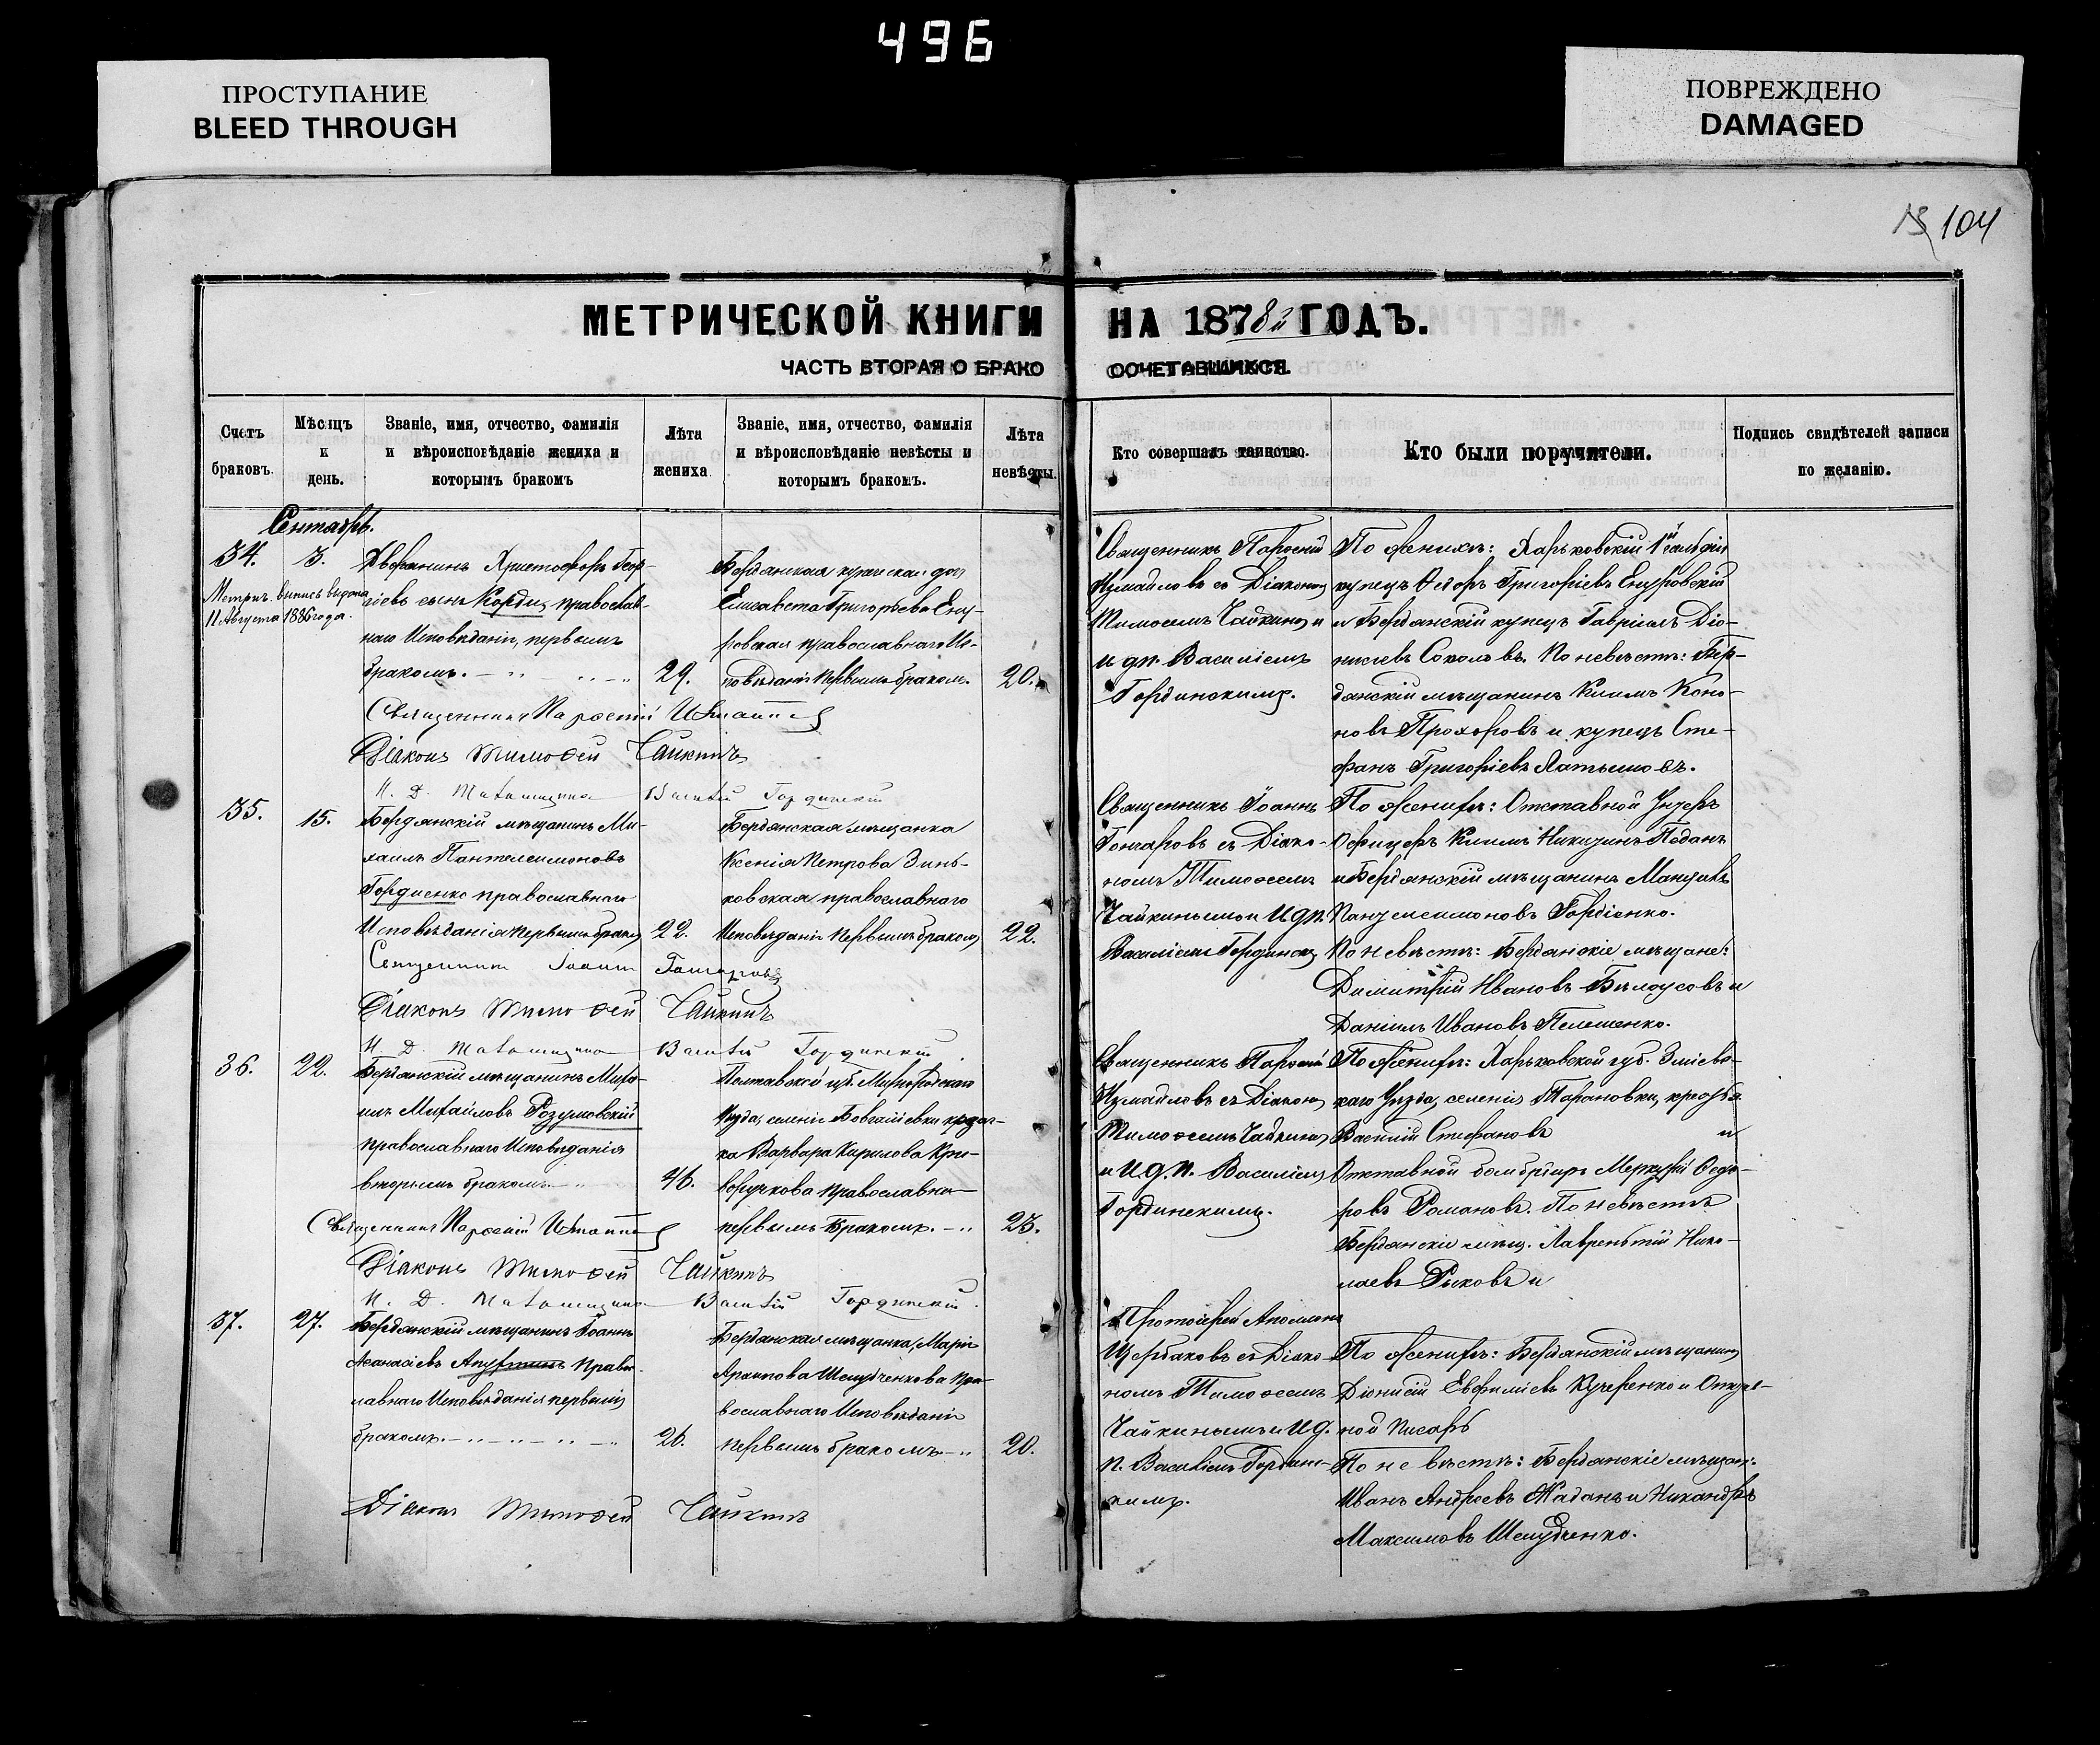 496
ПРОСТУПАНИЕ
BLEED THROUGH
ПОВРЕЖДЕНО
DAMAGED
104
МЕТРИЧЕСКОЙ КНИГИ НА 1878й ГОДЪ.
ЧАСТЬ ВТОРАЯ О БРАКО СОЧЕТАВШИХСЯ.
Счетъ браковъ.
Мѣсяцъ и день.
Званіе, имя, отчество, фамилія
и вѣроисповѣданіе жениха и
которымъ бракомъ
Лѣта жениха
Званіе, имя, отчество, фамилія
и вѣроисповѣданіе невѣсты и
которымъ бракомъ.
Лѣта невѣсты.
Кто совершалъ таинство.
Кто были поручители.
Подпись свидѣтелей записи
по желанію.
Сентябрь.
34. 3.
Метрич. выпись выдана
11 Августа 1886 года.
Дворянинъ Христофоръ Геор-
гіевъ сынъ Корди, православ-
наго Исповѣданія, первымъ
бракомъ.
29.
Бердянская купеческая дочь
Елисавета Григорьева Ену-
ровская православнаго Ис-
повѣданія первымъ бракомъ.
20.
Священникъ Парѳеній
Измаиловъ съ Діакономъ
Тимоѳеемъ Чайкинымъ и
и. д. п. Василіемъ
Гординскимъ.
По женихѣ: Харьковскій 1й гильдіи
купецъ Ѳедоръ Григорьевъ Енуровскій
и Бердянскій купецъ Гавріилъ Діо-
нисіевъ Соколовъ. По невѣстѣ: Бер-
дянскій мѣщанинъ Климъ Коно-
новъ Прохоровъ и купецъ Сте-
фанъ Григорьевъ Латышовъ.
Священникъ Парѳеній
Діаконъ Тимоѳей Чайкинъ
И. Д. Псаломщика Василій Гординскій
35. 15.
Бердянскій мѣщанинъ Ми-
хаилъ Пантелеимоновъ
Гордиенко православнаго
Исповѣданія первымъ бракомъ
22.
Бердянская мѣщанка
Ксенія Петрова Зинь-
ковская православнаго
Исповѣданія первымъ бракомъ
22.
Священникъ Іоаннъ
Гончаровъ съ Діако-
номъ Тимоѳеемъ
Чайкинымъ и И. д. п.
Василіемъ Гординскимъ
По женихѣ: Отставной Унтеръ
Офицеръ Климъ Никитинъ Педанъ
и Бердянскій мѣщанинъ
Пантелеимоновъ Гордіенко.
По невѣстѣ: Бердянскіе мѣщане:
Димитрій Ивановъ Бѣлоусовъ и
Даніилъ Ивановъ Пелешенко.
Священникъ Іоаннъ Гончаровъ
Діаконъ Тимоѳей Чайкинъ
И. Д. Псаломщика Василій Гординскій
36. 22.
Бердянскій мѣщанинъ Миха-
илъ Михайловъ Розумовскій
православнаго Исповѣданія
вторымъ бракомъ
46.
Полтавской губ. Миргородскаго
Уѣзда, селенія
ка Варвара Кирилова Кри-
воручкова православна
первымъ бракомъ.
23.
Священникъ Парѳеній
Измаиловъ съ Діакономъ
Тимоѳеемъ Чайкинымъ
и И. д. п. Василіемъ
Гординскимъ.
По женихѣ: Харьковской губ. Зміев-
скаго Уѣзда, селенія Тарановки,
Василій Стефановъ и
Отставной бомбардиръ Меркурій Ѳедо-
ровъ Романовъ. По невѣстѣ
Бердянскіе мѣщ. Лаврентій Нико-
лаевъ Рыковъ и
Священникъ Парѳеній
Діаконъ Тимоѳей Чайкинъ
И. Д. Псаломщика Василій Гординскій
37. 27.
Бердянскій мѣщанинъ Іоаннъ
Аѳанасіевъ правос-
лавнаго Исповѣданія первымъ
бракомъ.
26.
Бердянская мѣщанка Марія
Архипова Шелудченкова пра-
вославнаго Исповѣданія
первымъ бракомъ
20.
Протоіерей
Щербаковъ съ Діако-
номъ Тимоѳеемъ
Чайкинымъ и И. д.
п. Василіемъ Гординс-
кимъ.
По женихѣ: Бердянскій мѣщанинъ
Діонисій Евфиміевъ Кучеренко и Отстав-
ной писарь
По невѣстѣ: Бердянскіе мѣщан:
Иванъ Андреевъ Жаданъ и Никандръ
Максимовъ Шелудченко.
Діаконъ Тимоѳей Чайкинъ